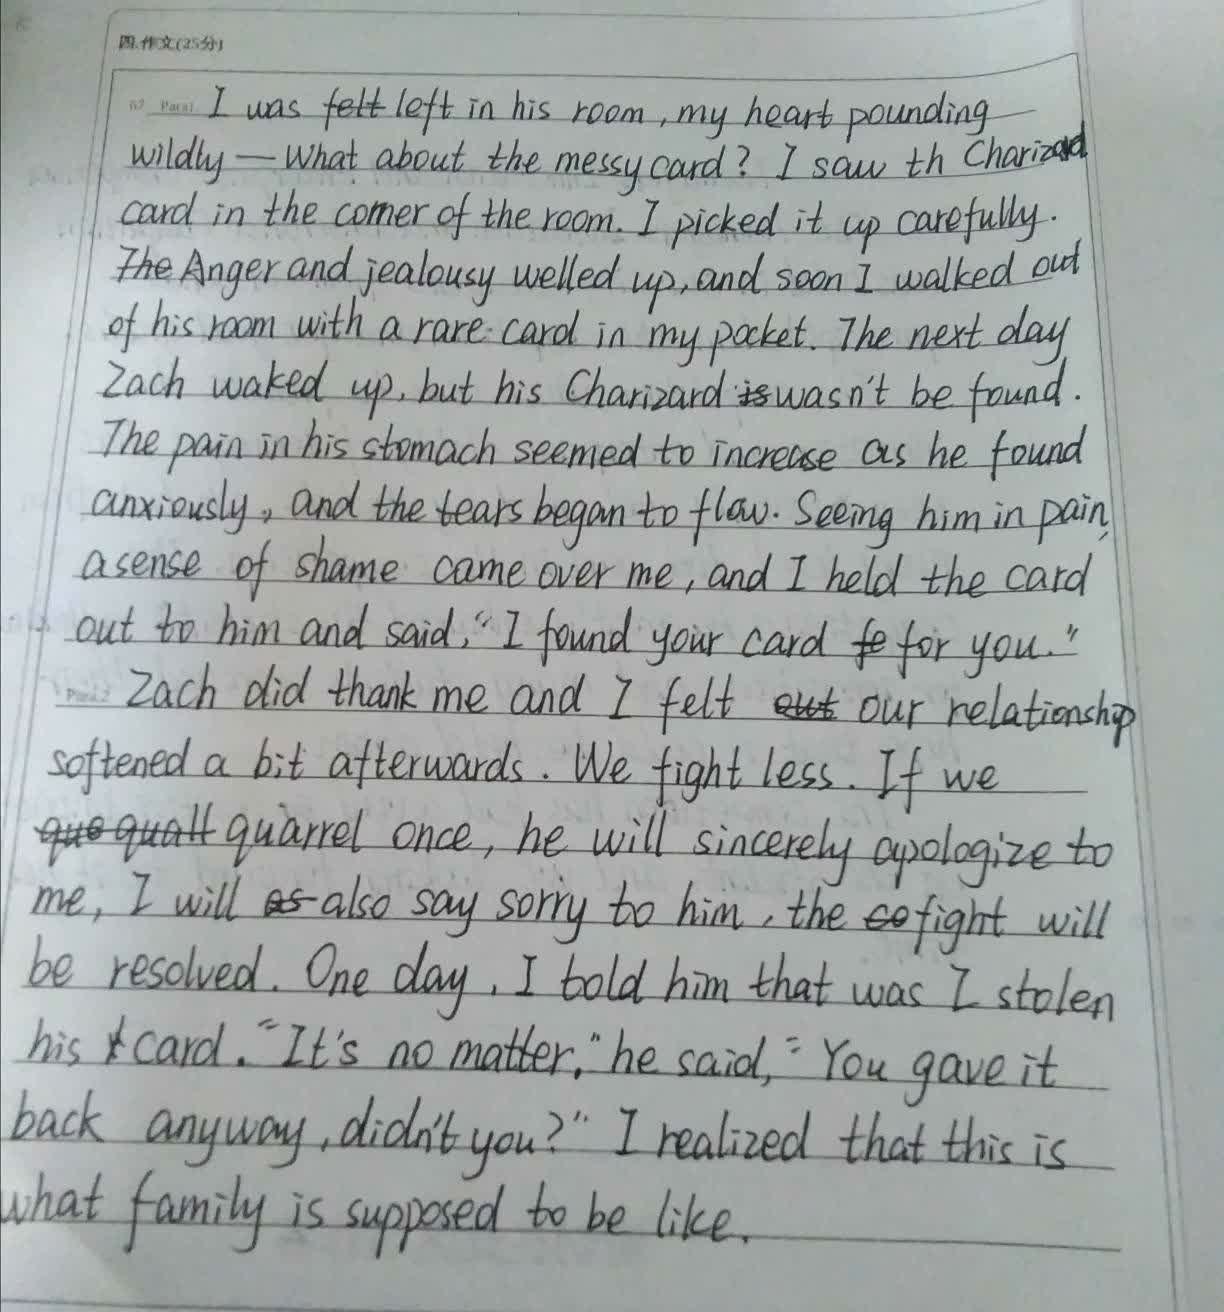 四.作文(25分)
67 Para1 I was felt left in his room, my heart pounding
wildly — What about the messy card? I saw th Charizard
card in the corner of the room. I picked it up carefully.
The Anger and jealousy welled up, and soon I walked out
of his room with a rare card in my pocket. The next day
Zach waked up, but his Charizard is wasn't be found.
The pain in his stomach seemed to increase as he found
anxiously, and the tears began to flow. Seeing him in pain,
a sense of shame came over me, and I held the card
out to him and said, "I found your card fe for you."
Para2 Zach did thank me and I felt out our relationship
softened a bit afterwards. We fight less. If we
que quall quarrel once, he will sincerely apologize to
me, I will as also say sorry to him, the co fight will
be resolved. One day, I told him that was I stolen
his card. "It's no matter," he said, "You gave it
back anyway, didn't you?" I realized that this is
what family is supposed to be like.